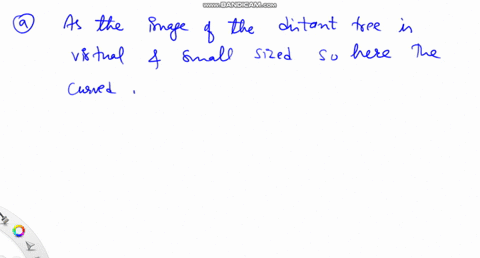 WWW.BANDICAM.COM
a As the image of the distant tree is
virtual & small sized so here the
curved